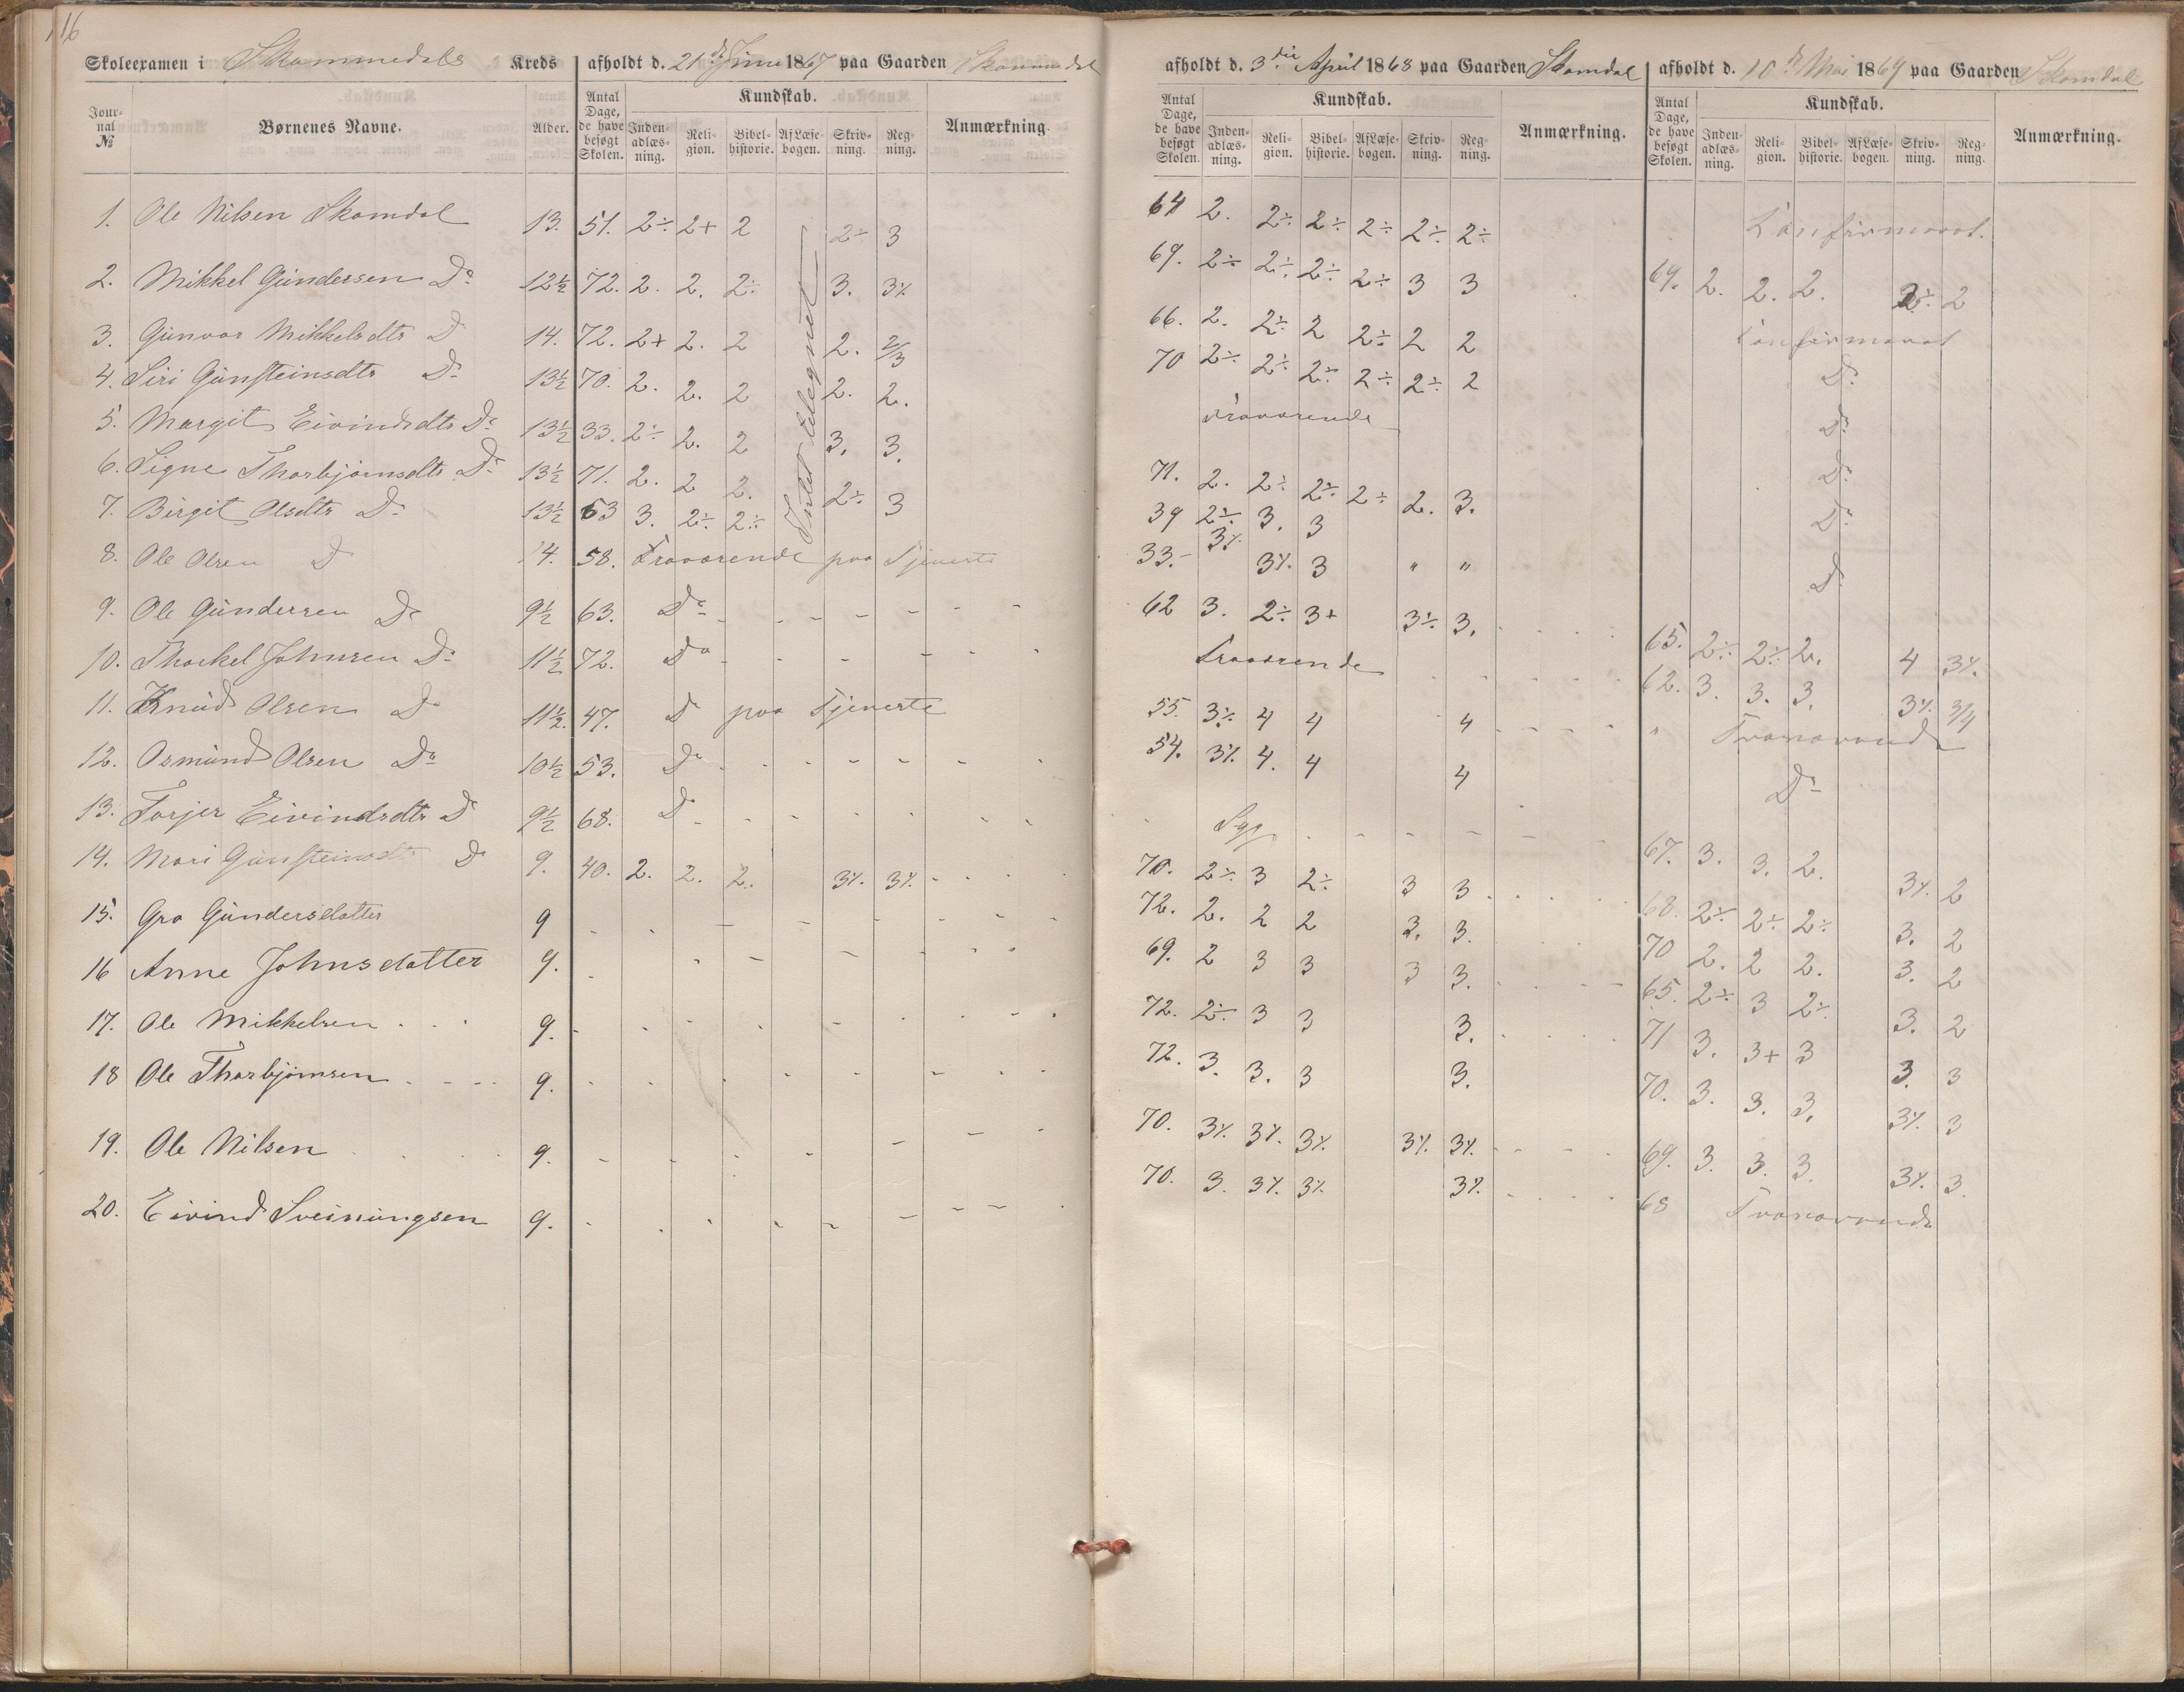 116
Skoleexamen i Skommedals Kreds afholdt d. 21de Juni 1867 paa Gaarden Skommedal
Jour-nal № Børnenes Navne. Alder. Antal Dage, de have besøgt Skolen. Kundskab. Inden-adlæs-ning. Reli-gion. Bibel-historie. Af Læse-bogen. Skriv-ning. Reg-ning. Anmærkning.
1. Ole Nilsen Skomdal 13. 51. 2÷ 2+ 2 2÷ 3
2. Mikkel Gundersen Do 12½ 72. 2. 2. 2÷ 3. 3⁒
3. Gunvor Mikkelsdtr D 14. 72. 2+ 2. 2 2. 2/3
4. Siri Gunsteinsdtr Do 13½ 70. 2. 2. 2 2. 2.
5. Margit Eivindsdtr Do 13½ 33. 2÷ 2. 2 3. 3.
6. Signe Thorbjørnsdtr Do 13½ 71. 2. 2 2. 2÷ 3
7. Birgit Olsdtr Do 13½ 63 3. 2÷ 2÷
Intet telegnet
8. Ole Olsen D 14. 58. Fraværende paa Tjeneste
9. Ole Gundersen Do 9½ 63. Do
10. Thorkel Johnsen Do 11½ 72. Do
11. Knud Olsen Do 11½. 47. D paa Tjeneste
12. Osmund Olsen Do 10½ 53. Do
13. Torjer Eivindsdtr D 9½ 68. D
14. Mari Gunsteinsdtr D 9. 40. 2. 2. 2. 3⁒. 3⁒.
15. Gro Gundersdatter 9
16 Anne Johnsdatter 9.
17. Ole Mikkelsen 9.
18 Ole Thorbjørnsen 9.
19. Ole Nilsen 9.
20. Eivind Sveinungsen 9.
afholdt d. 3die April 1868 paa Gaarden Skomdal
Antal Dage, de have besøgt Skolen. Kundskab. Inden-adlæs-ning. Reli-gion. Bibel-historie. Af Læse-bogen. Skriv-ning. Reg-ning. Anmærkning.
64 2. 2÷ 2÷ 2÷ 2÷ 2÷
69. 2÷ 2÷ 2÷ 2÷ 3 3
66. 2. 2÷ 2 2÷ 2 2
70 2÷ 2÷ 2÷ 2÷ 2÷ 2
Fraværende
71. 2. 2÷ 2÷ 2÷ 2. 3.
39 2÷ 3. 3
33.- 3⁒ 3⁒. 3 " "
62 3. 2÷ 3+ 3÷ 3.
Fraværende
55. 3⁒ 4 4 4
54. 3⁒ 4. 4 4
Syg
70. 2÷ 3 2÷ 3 3
72. 2. 2 2 3. 3.
69. 2 3 3 3 3.
72. 2÷ 3 3 3.
72. 3. 3. 3 3.
70. 3⁒ 3⁒. 3⁒ 3⁒ 3⁒.
70. 3. 3⁒. 3⁒. 3⁒
afholdt d. 10de Mai 1869 paa Gaarden Skomdal
Antal Dage, de have besøgt Skolen. Kundskab. Inden-adlæs-ning. Reli-gion. Bibel-historie. Af Læse-bogen. Skriv-ning. Reg-ning. Anmærkning.
Konfirmeret.
69. 2. 2. 2. 2÷ 2
Konfirmeret
Do
Do
Do
Do
D
65. 2÷ 2÷ 2. 4 3⁒.
62. 3. 3. 3. 3⁒. 3/4
" Fraværende
Do
67. 3. 3. 2. 3⁒. 2
68. 2÷ 2÷ 2÷ 3. 2
70 2. 2 2. 3. 2
65. 2÷ 3 2÷ 3. 2
71 3. 3+ 3 3. 3
70. 3. 3. 3. 3⁒. 3
69. 3. 3. 3. 3⁒. 3.
68 Fraværende